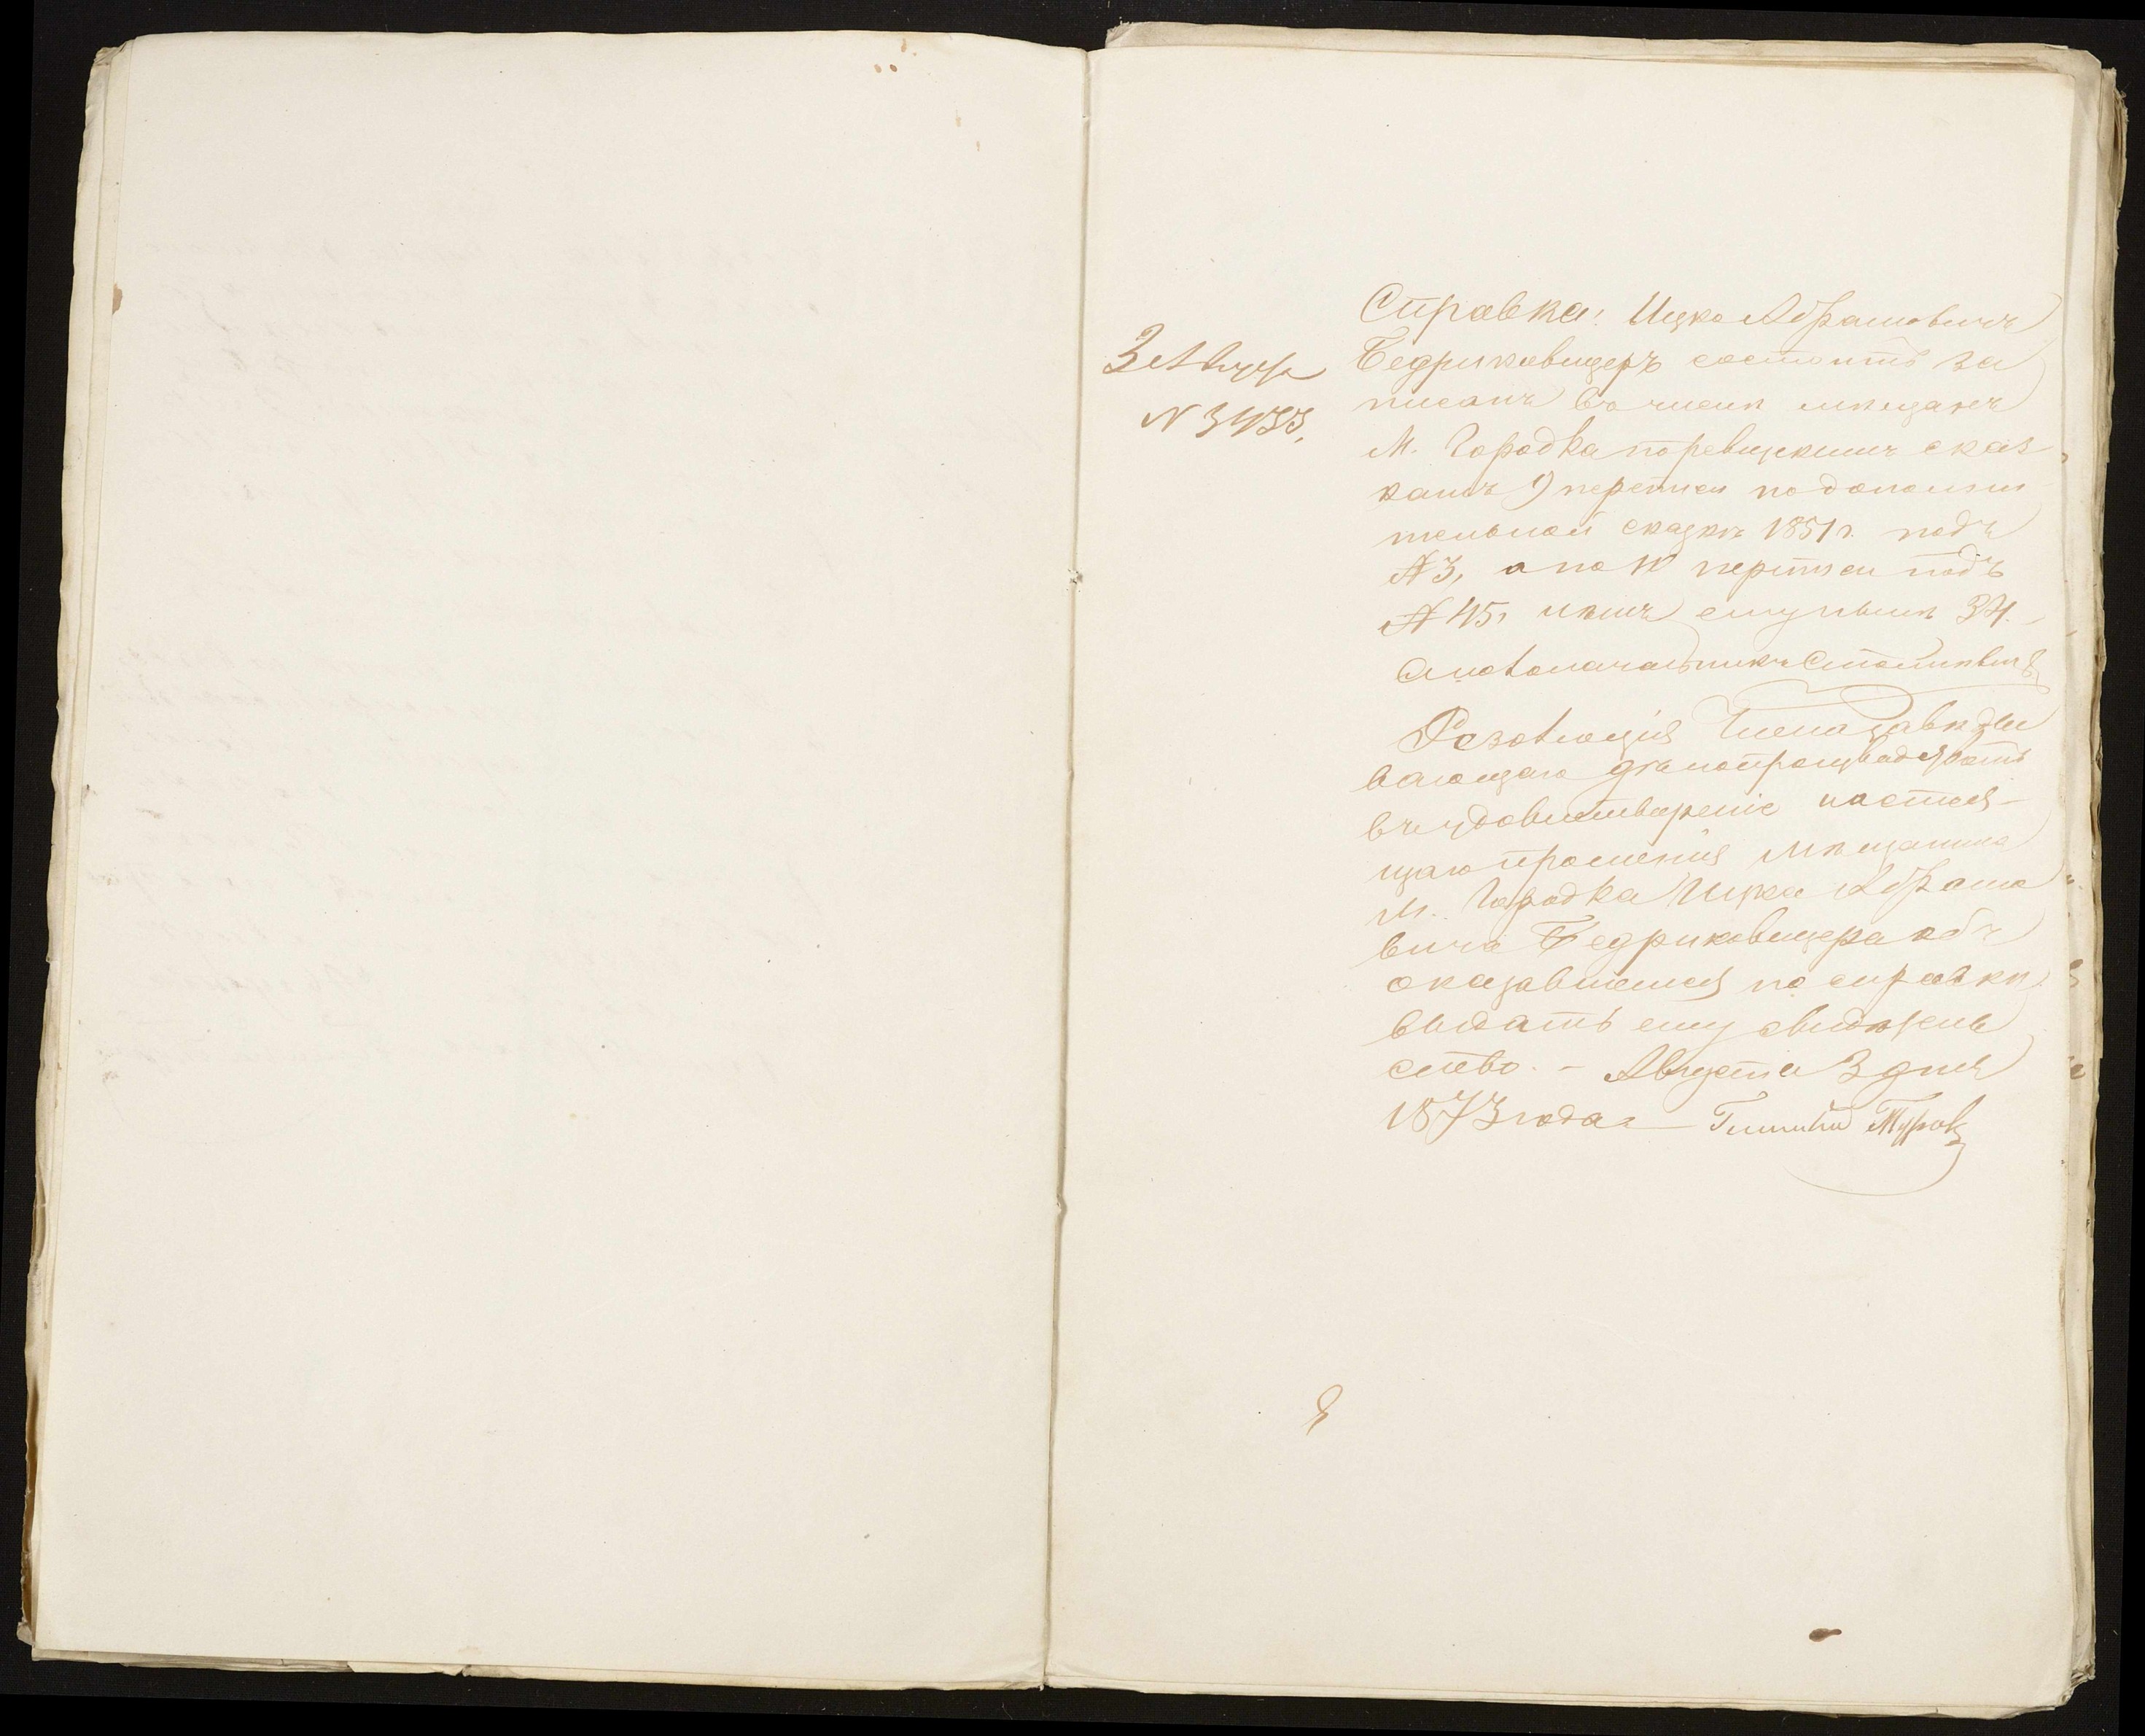 3 Авгус
N 3433,
Справка: Ицко Абрамовичъ
Бедриковицеръ состоитъ за
писанъ въ числѣ мѣщанъ
М. Городка по ревизскимъ сказ-
камъ 9 переписи по дополни
тельной сказкѣ 1851 г. подъ
№ 3, а по 10 переписи подъ
№ 45, лѣтъ ему нынѣ 34.
Столоначальникъ
Резолюція Члена завѣды
вающаго дѣлопроизводствомъ
въ удовлетвореніе настоя-
щаго прошенія мѣщанина
М. Городка Ицка Абрамо
вича Бедриковицера объ
оказавшемся по справкѣ
выдать ему свидѣтель
ство. - Августа 3 дня
1873 года